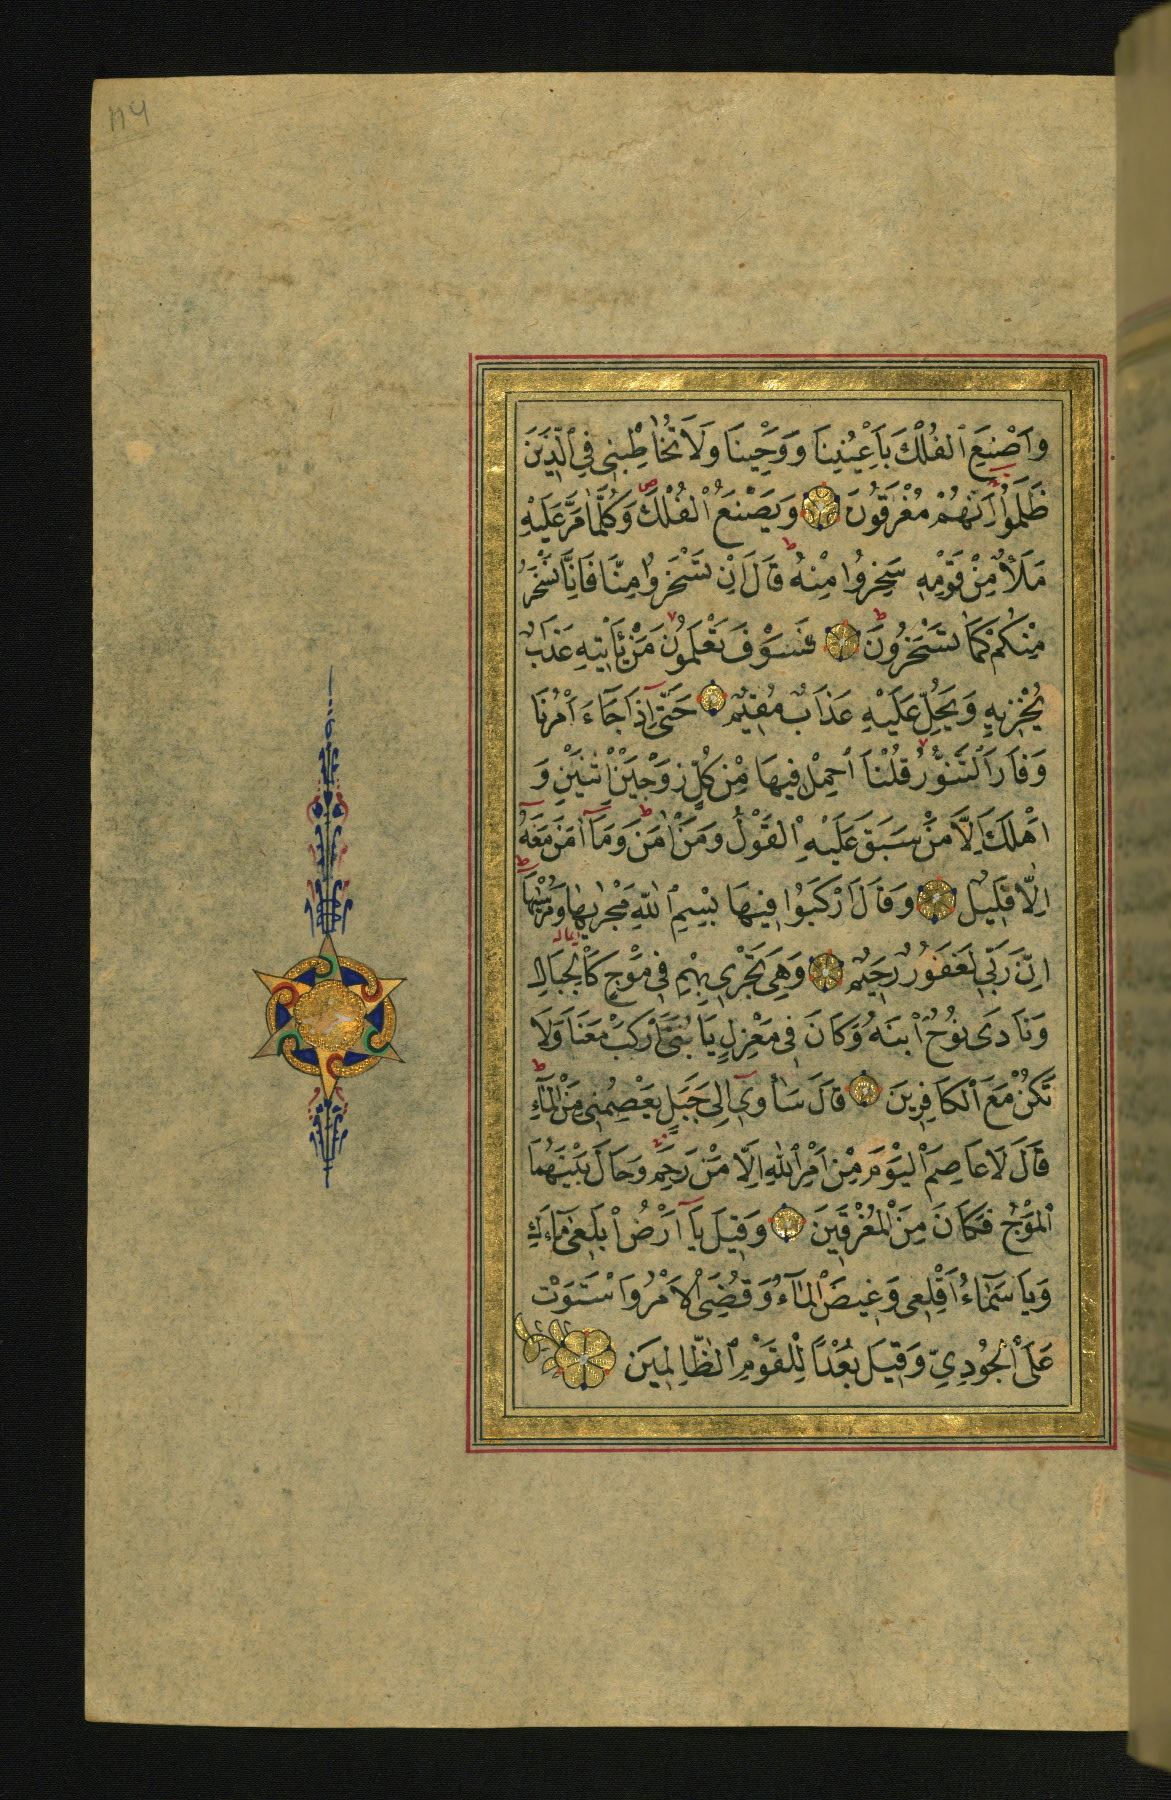 114
وَاصْنَعِ الْفُلْكَ بِاَعْيُنِنَا وَوَحْيِنَا وَلَا تُخَاطِبْنِي فِي الَّذِينَ
ظَلَمُوا اِنَّهُمْ مُغْرَقُونَ وَيَصْنَعُ الْفُلْكَ وَكُلَّمَا مَرَّ عَلَيْهِ
مَلَأٌ مِنْ قَوْمِهِ سَخِرُوا مِنْهُ قَالَ اِنْ تَسْخَرُوا مِنَّا فَاِنَّا نَسْخَرُ
مِنْكُمْ كَمَا تَسْخَرُونَ فَسَوْفَ تَعْلَمُونَ مَنْ يَأْتِيهِ عَذَابٌ
يُخْزِيهِ وَيَحِلُّ عَلَيْهِ عَذَابٌ مُقِيمٌ حَتَّى اِذَا جَاءَ اَمْرُنَا
وَفَارَ التَّنُّورُ قُلْنَا احْمِلْ فِيهَا مِنْ كُلٍّ زَوْجَيْنِ اثْنَيْنِ وَ
اَهْلَكَ اِلَّا مَنْ سَبَقَ عَلَيْهِ الْقَوْلُ وَمَنْ اٰمَنَ وَمَا اٰمَنَ مَعَهُ
اِلَّا قَلِيلٌ وَقَالَ ارْكَبُوا فِيهَا بِسْمِ اللّٰهِ مَجْرٰيهَا وَمُرْسٰيهَا
اماله
اِنَّ رَبِّي لَغَفُورٌ رَحِيمٌ وَهِيَ تَجْرِي بِهِمْ فِي مَوْجٍ كَالْجِبَالِ
وَنَادَى نُوحٌ ابْنَهُ وَكَانَ فِي مَعْزِلٍ يَا بُنَيَّ ارْكَبْ مَعَنَا وَلَا
تَكُنْ مَعَ الْكَافِرِينَ قَالَ سَاٰوِي اِلَى جَبَلٍ يَعْصِمُنِي مِنَ الْمَاءِ
قَالَ لَا عَاصِمَ الْيَوْمَ مِنْ اَمْرِ اللّٰهِ اِلَّا مَنْ رَحِمَ وَحَالَ بَيْنَهُمَا
الْمَوْجُ فَكَانَ مِنَ الْمُغْرَقِينَ وَقِيلَ يَا اَرْضُ ابْلَعِي مَاءَكِ
وَيَا سَمَاءُ اَقْلِعِي وَغِيضَ الْمَاءُ وَقُضِيَ الْاَمْرُ وَاسْتَوَتْ
عَلَى الْجُودِيِّ وَقِيلَ بُعْدًا لِلْقَوْمِ الظَّالِمِينَ